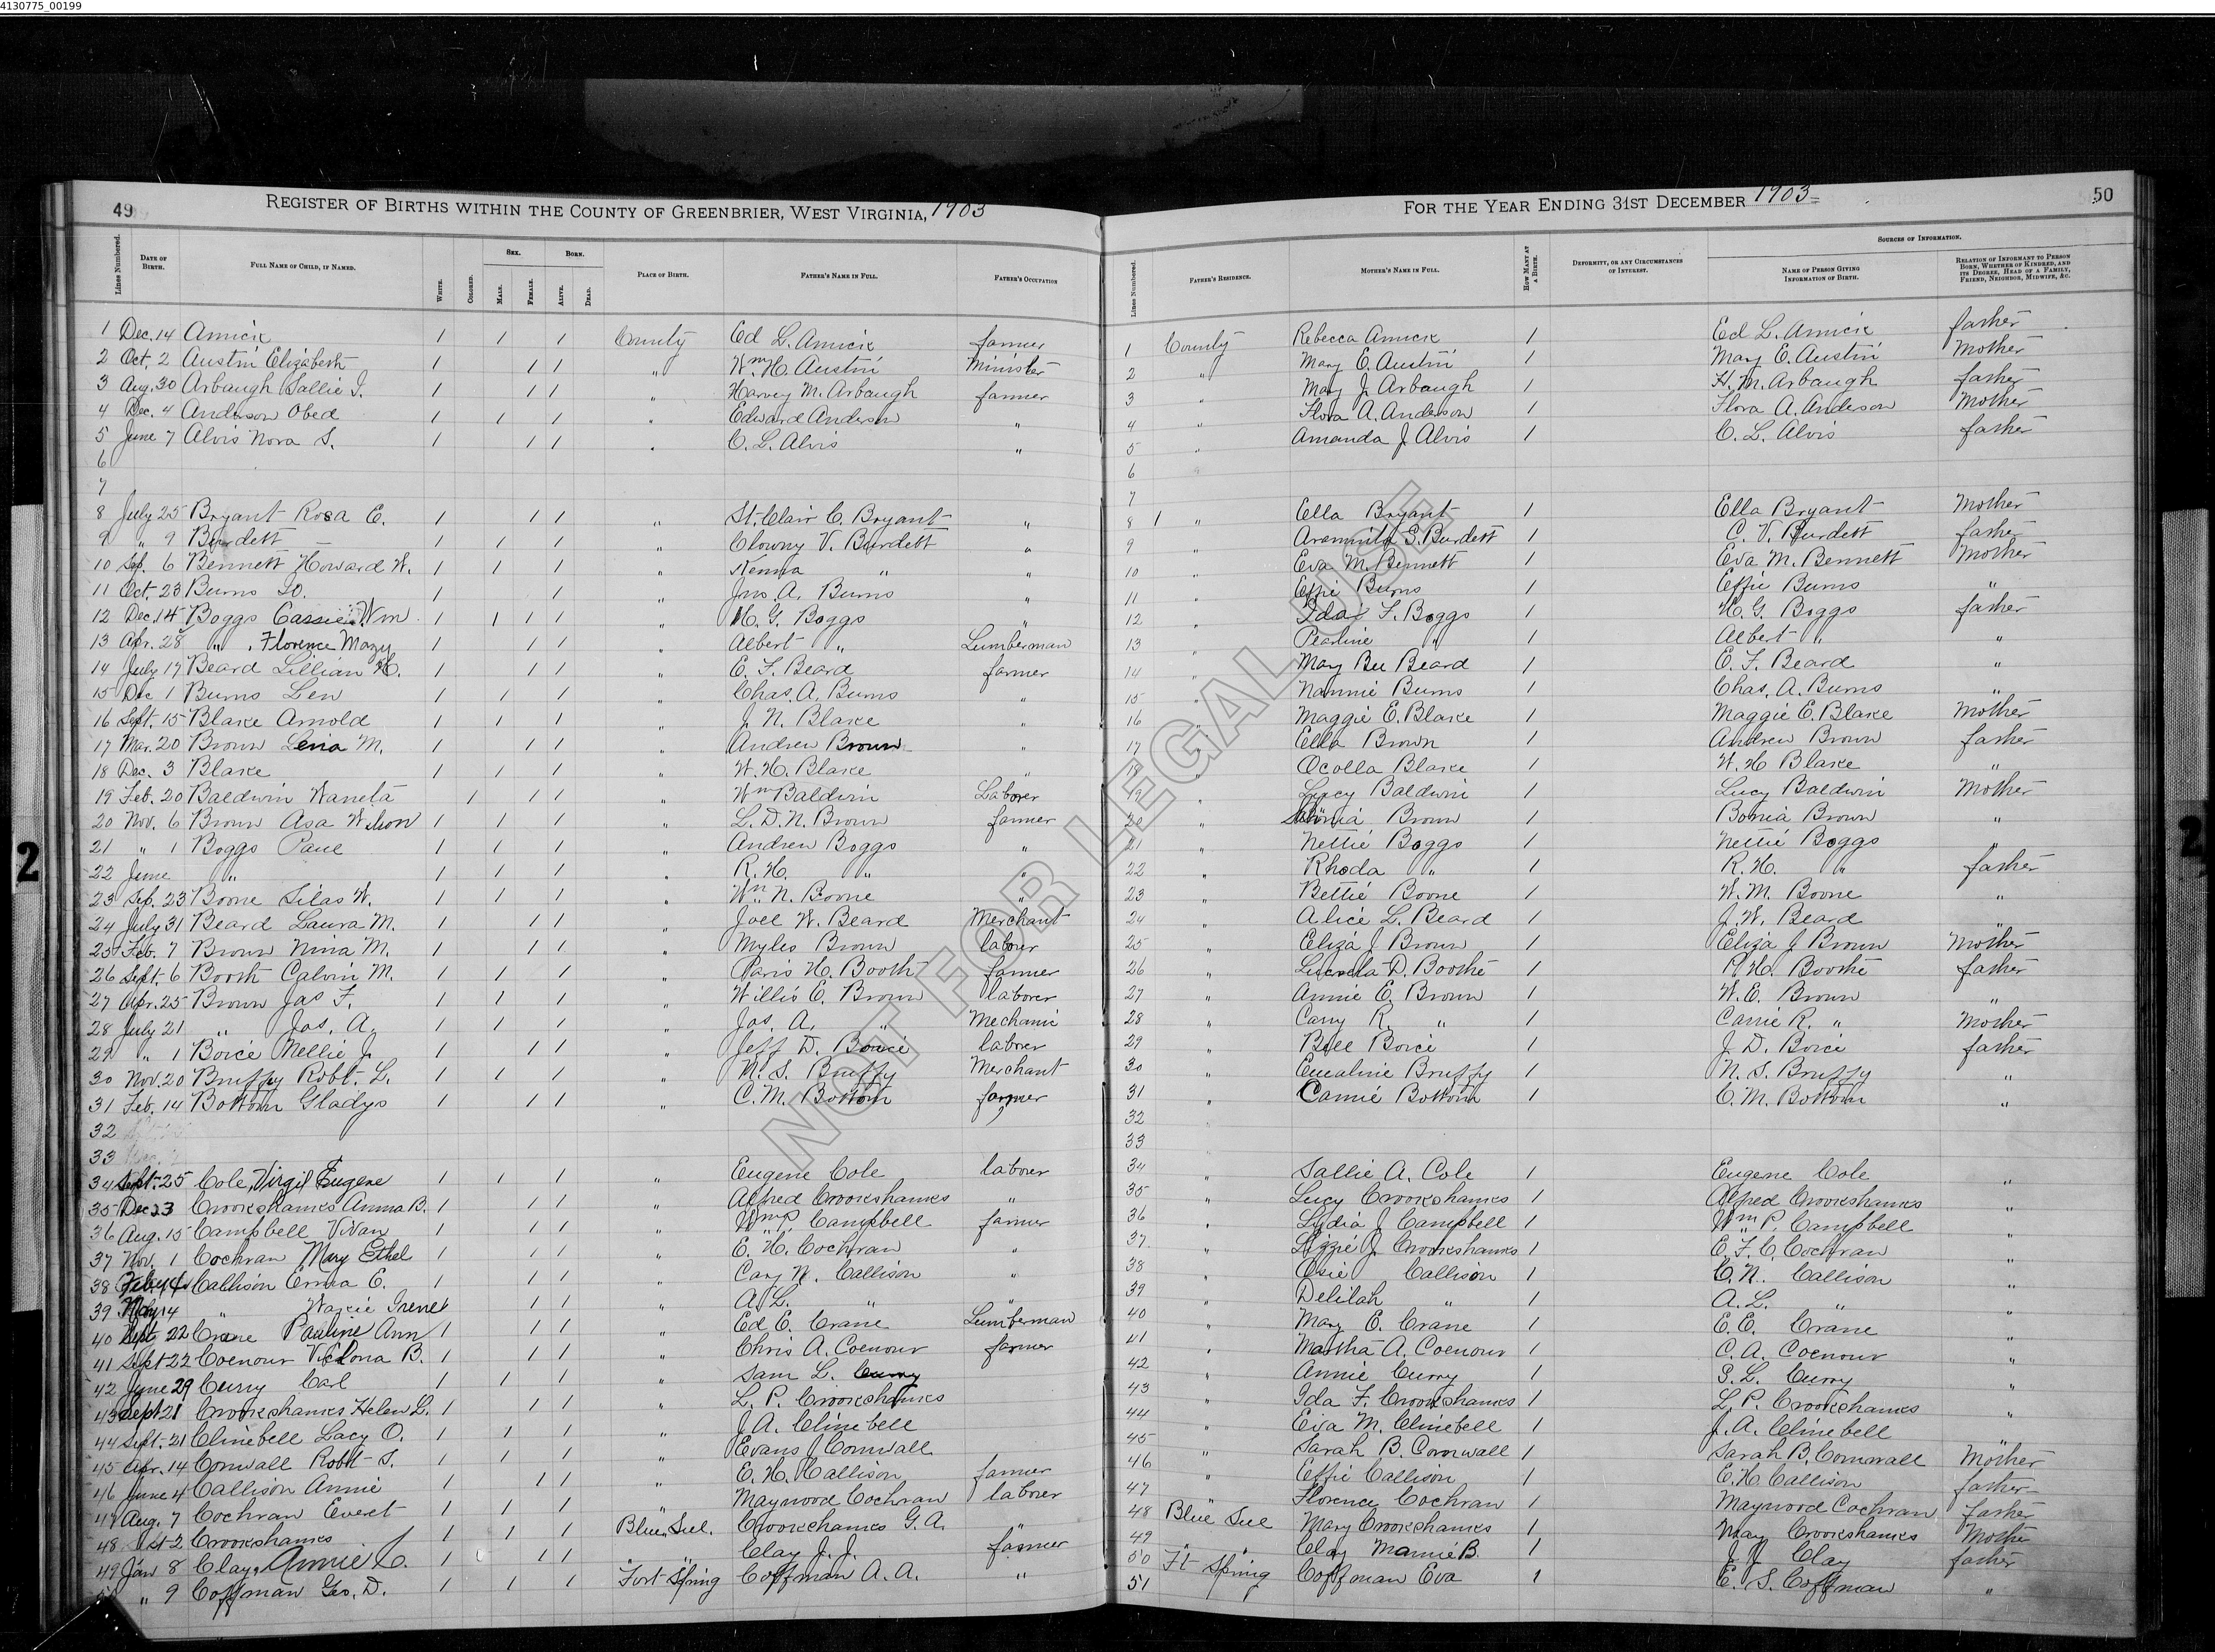 4130775_00199
49 REGISTER OF BIRTHS WITHIN THE COUNTY OF GREENBRIER, WEST VIRGINIA, 1903
FOR THE YEAR ENDING 31ST DECEMBER 1903 50
Lines Numbered. DATE OF BIRTH. FULL NAME OF CHILD, IF NAMED. WHITE. COLORED. SEX. MALE. FEMALE. BORN. ALIVE. DEAD. PLACE OF BIRTH. FATHER'S NAME IN FULL. FATHER'S OCCUPATION
Lines Numbered. FATHER'S RESIDENCE. MOTHER'S NAME IN FULL. HOW MANY AT A BIRTH. DEFORMITY, OR ANY CIRCUMSTANCES OF INTEREST. SOURCES OF INFORMATION. NAME OF PERSON GIVING INFORMATION OF BIRTH. RELATION OF INFORMANT TO PERSON BORN, WHETHER OF KINDRED, AND ITS DEGREE, HEAD OF A FAMILY, FRIEND, NEIGHBOR, MIDWIFE, &C.
1 Dec. 14 Amick 1 1 1 County Ed L. Amick farmer
2 Oct. 2 Austin Elizabeth 1 1 1 " Wm. H. Austin Minister
3 Aug. 30 Arbaugh Sallie I. 1 1 1 " Harvey M. Arbaugh farmer
4 Dec. 4 Anderson Obed 1 1 1 " Edward Anderson "
5 June 7 Alvis Nora S. 1 1 1 " C. L. Alvis "
6
7
8 July 25 Bryant Rosa E. 1 1 1 " St. Clair C. Bryant "
9 " 9 Burdett — 1 1 1 " Clowny V. Burdett "
10 Sep. 6 Bennett Howard W. 1 1 1 " Kenna " "
11 Oct. 23 Burns 1 1 " Jno. A. Burns "
12 Dec. 14 Boggs Cassie Wm 1 1 1 1 " H. G. Boggs "
13 Apr. 28 " Florence Mary 1 1 1 " Albert " Lumberman
14 July 17 Beard Lillian H. 1 1 1 " E. F. Beard farmer
15 Dec 1 Burns Len 1 1 1 " Chas. A. Burns "
16 Sept. 15 Blake Arnold 1 1 1 " J. N. Blake "
17 Mar. 20 Brown Lena M. 1 1 1 " Andrew Brown "
18 Dec. 3 Blake 1 1 1 " W. H. Blake "
19 Feb. 20 Baldwin Waneta 1 1 1 " Wm Baldwin Laborer
20 Nov. 6 Brown Asa Wilson 1 1 1 " L. D. N. Brown farmer
21 " 1 Boggs Paul 1 1 1 " Andrew Boggs "
22 June " 1 1 1 " R. H. " "
23 Sep. 23 Boone Silas W. 1 1 1 " Wm. N. Boone "
24 July 31 Beard Laura M. 1 1 1 " Joel W. Beard Merchant
25 Feb. 7 Brown Nina M. 1 1 1 " Myles Brown laborer
26 Sept. 6 Booth Calvin M. 1 1 1 " Paris H. Booth farmer
27 Apr. 25 Brown Jas F. 1 1 1 " Willis E. Brown laborer
28 July 21 " Jas. A. 1 1 1 " Jas. A. " Mechanic
29 " 1 Boice Nellie J. 1 1 1 " Jeff D. Boice laborer
30 Nov. 20 Bruffy Robt. L. 1 1 1 " N. S. Bruffy Merchant
31 Feb. 14 Bottom Gladys 1 1 1 " C. M. Bottom farmer
32
33
34 Sept. 25 Cole, Virgil Eugene 1 1 1 " Eugene Cole laborer
35 Dec 23 Crookshanks Anna B. 1 1 1 " Alfred Crookshanks "
36 Aug. 15 Campbell Vivan 1 1 1 " Wm P. Campbell farmer
37 Nov. 1 Cochran Mary Ethel 1 1 1 " E. H. Cochran "
38 Callison Erma E. 1 1 1 " Cary N. Callison "
39 May 14 " Irene 1 1 1 " A. L. " "
40 Sept 22 Crane Pauline Ann 1 1 1 " Ed E. Crane Lumberman
41 Sept 22 Coenour Victoria B. 1 1 1 " Chris A. Coenour farmer
42 June 29 Curry Carl 1 1 1 " Sam L. Curry
43 Sept 21 Crookshanks Helen L. 1 1 1 " L. P. Crookshanks
44 Sept. 21 Clinebell Lacy O. 1 1 1 " J. A. Clinebell
45 Apr. 14 Cornwall Robt S. 1 1 1 " Evans J Cornwall
46 June 4 Callison Annie 1 1 1 " E. H. Callison farmer
47 Aug. 7 Cochran Everet 1 1 1 " Maywood Cochran laborer
48 Crookshanks 1 1 1 Blue Sul. Crookshanks G. A. "
49 Jan 8 Clay, Annie L. 1 1 1 " " Clay J. J. farmer
" 9 Coffman Geo. D. 1 1 1 Fort Spring Coffman A. A. "
1 County Rebecca Amick 1 Ed L. Amick father
2 " Mary E. Austin 1 Mary E. Austin Mother
3 " Mary J. Arbaugh 1 H. M. Arbaugh father
4 " Flora A. Anderson 1 Flora A. Anderson Mother
5 " Amanda J. Alvis 1 C. L. Alvis father
6 "
7
8 1 " Ella Bryant 1 Ella Bryant Mother
9 " Araminta S. Burdett 1 C. V. Burdett father
10 " Eva M. Bennett 1 Eva M. Bennett Mother
11 " Effie Burns 1 Effie Burns "
12 " Ida F. Boggs 1 H. G. Boggs father
13 " Pearline " 1 Albert " "
14 " Mary Bee Beard 1 E. F. Beard "
15 " Nannie Burns 1 Chas. A. Burns "
16 " Maggie E. Blake 1 Maggie E. Blake Mother
17 " Ella Brown 1 Andrew Brown father
18 " Ocolla Blake 1 W. H Blake "
19 " Lucy Baldwin 1 Lucy Baldwin Mother
20 " Brown 1 Bonia Brown "
21 " Nettie Boggs 1 Nettie Boggs "
22 " Rhoda " 1 R. H. " father
23 " Bettie Boone 1 W. M. Boone "
24 " Alice L. Beard 1 J. W. Beard "
25 " Eliza J Brown 1 Eliza J Brown Mother
26 " D. Boothe 1 P. H. Boothe father
27 " Annie E. Brown 1 W. E. Brown "
28 " Carry R. " 1 Carrie R. " Mother
29 " Bell Boice 1 J. D. Boice father
30 " Emaline Bruffy 1 N. S. Bruffy "
31 " Cannie Bottom 1 C. M. Bottom "
32 "
33
34 " Sallie A. Cole 1 Eugene Cole "
35 " Lucy Crookshanks 1 Alfred Crookshanks "
36 " Lydia J Campbell 1 Wm P. Campbell "
37 " Lizzie J. Crookshanks 1 E. F. C. Cochran "
38 " Osie Callison 1 C. N. Callison "
39 " Delilah " 1 A. L. " "
40 " Mary E. Crane 1 E. E. Crane "
41 " Martha A. Coenour 1 C. A. Coenour "
42 " Annie Curry 1 S. L. Curry "
43 " Ida F. Crookshanks 1 L. P. Crookshanks "
44 " Eva M. Clinebell 1 J. A. Clinebell "
45 " Sarah B. Cornwall 1 Sarah B. Cornwall Mother
46 " Effie Callison 1 E. H. Callison father
47 " Florence Cochran 1 Maywood Cochran father
48 Blue Sul Mary Crookshanks 1 May Crookshanks Mother
49 " " Clay Mamie B. 1 Clay father
50 Ft Spring Coffman Eva 1 E. S. Coffman "
51
NOT FOR LEGAL USE
2
2